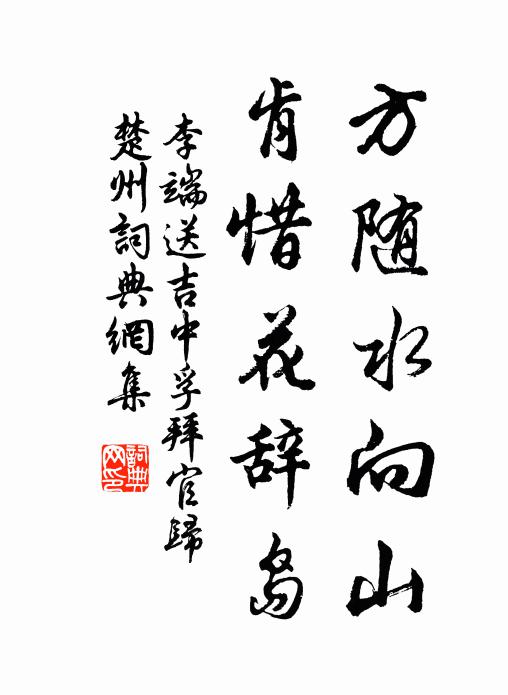 方随水向山
肯惜花辞岛
李端送吉中孚拜官歸
楚州詞典網集
詞典网印